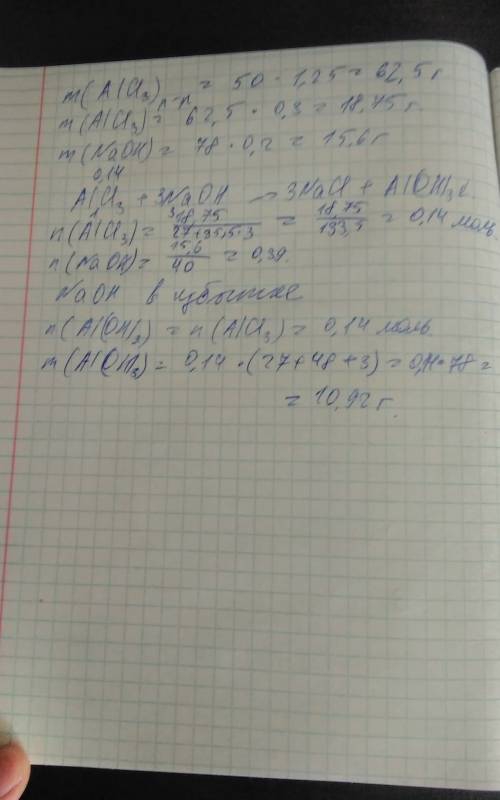 m(AlCl₃) р-р = 50 · 1,25 = 62,5 г
m(AlCl₃) = 62,5 · 0,3 = 18,75 г.
m(NaOH) = 78 · 0,2 = 15,6 г
0,14
AlCl₃ + 3NaOH → 3NaCl + Al(OH)₃↓
1 3
n(AlCl₃) = 18,75/27+35,5·3 = 18,75/133,5 = 0,14 моль
n(NaOH) = 15,6/40 = 0,39.
NaOH в избытке
n(Al(OH)₃) = n(AlCl₃) = 0,14 моль.
m(Al(OH)₃) = 0,14 · (27+48+3) = 0,14·78 =
= 10,92 г.